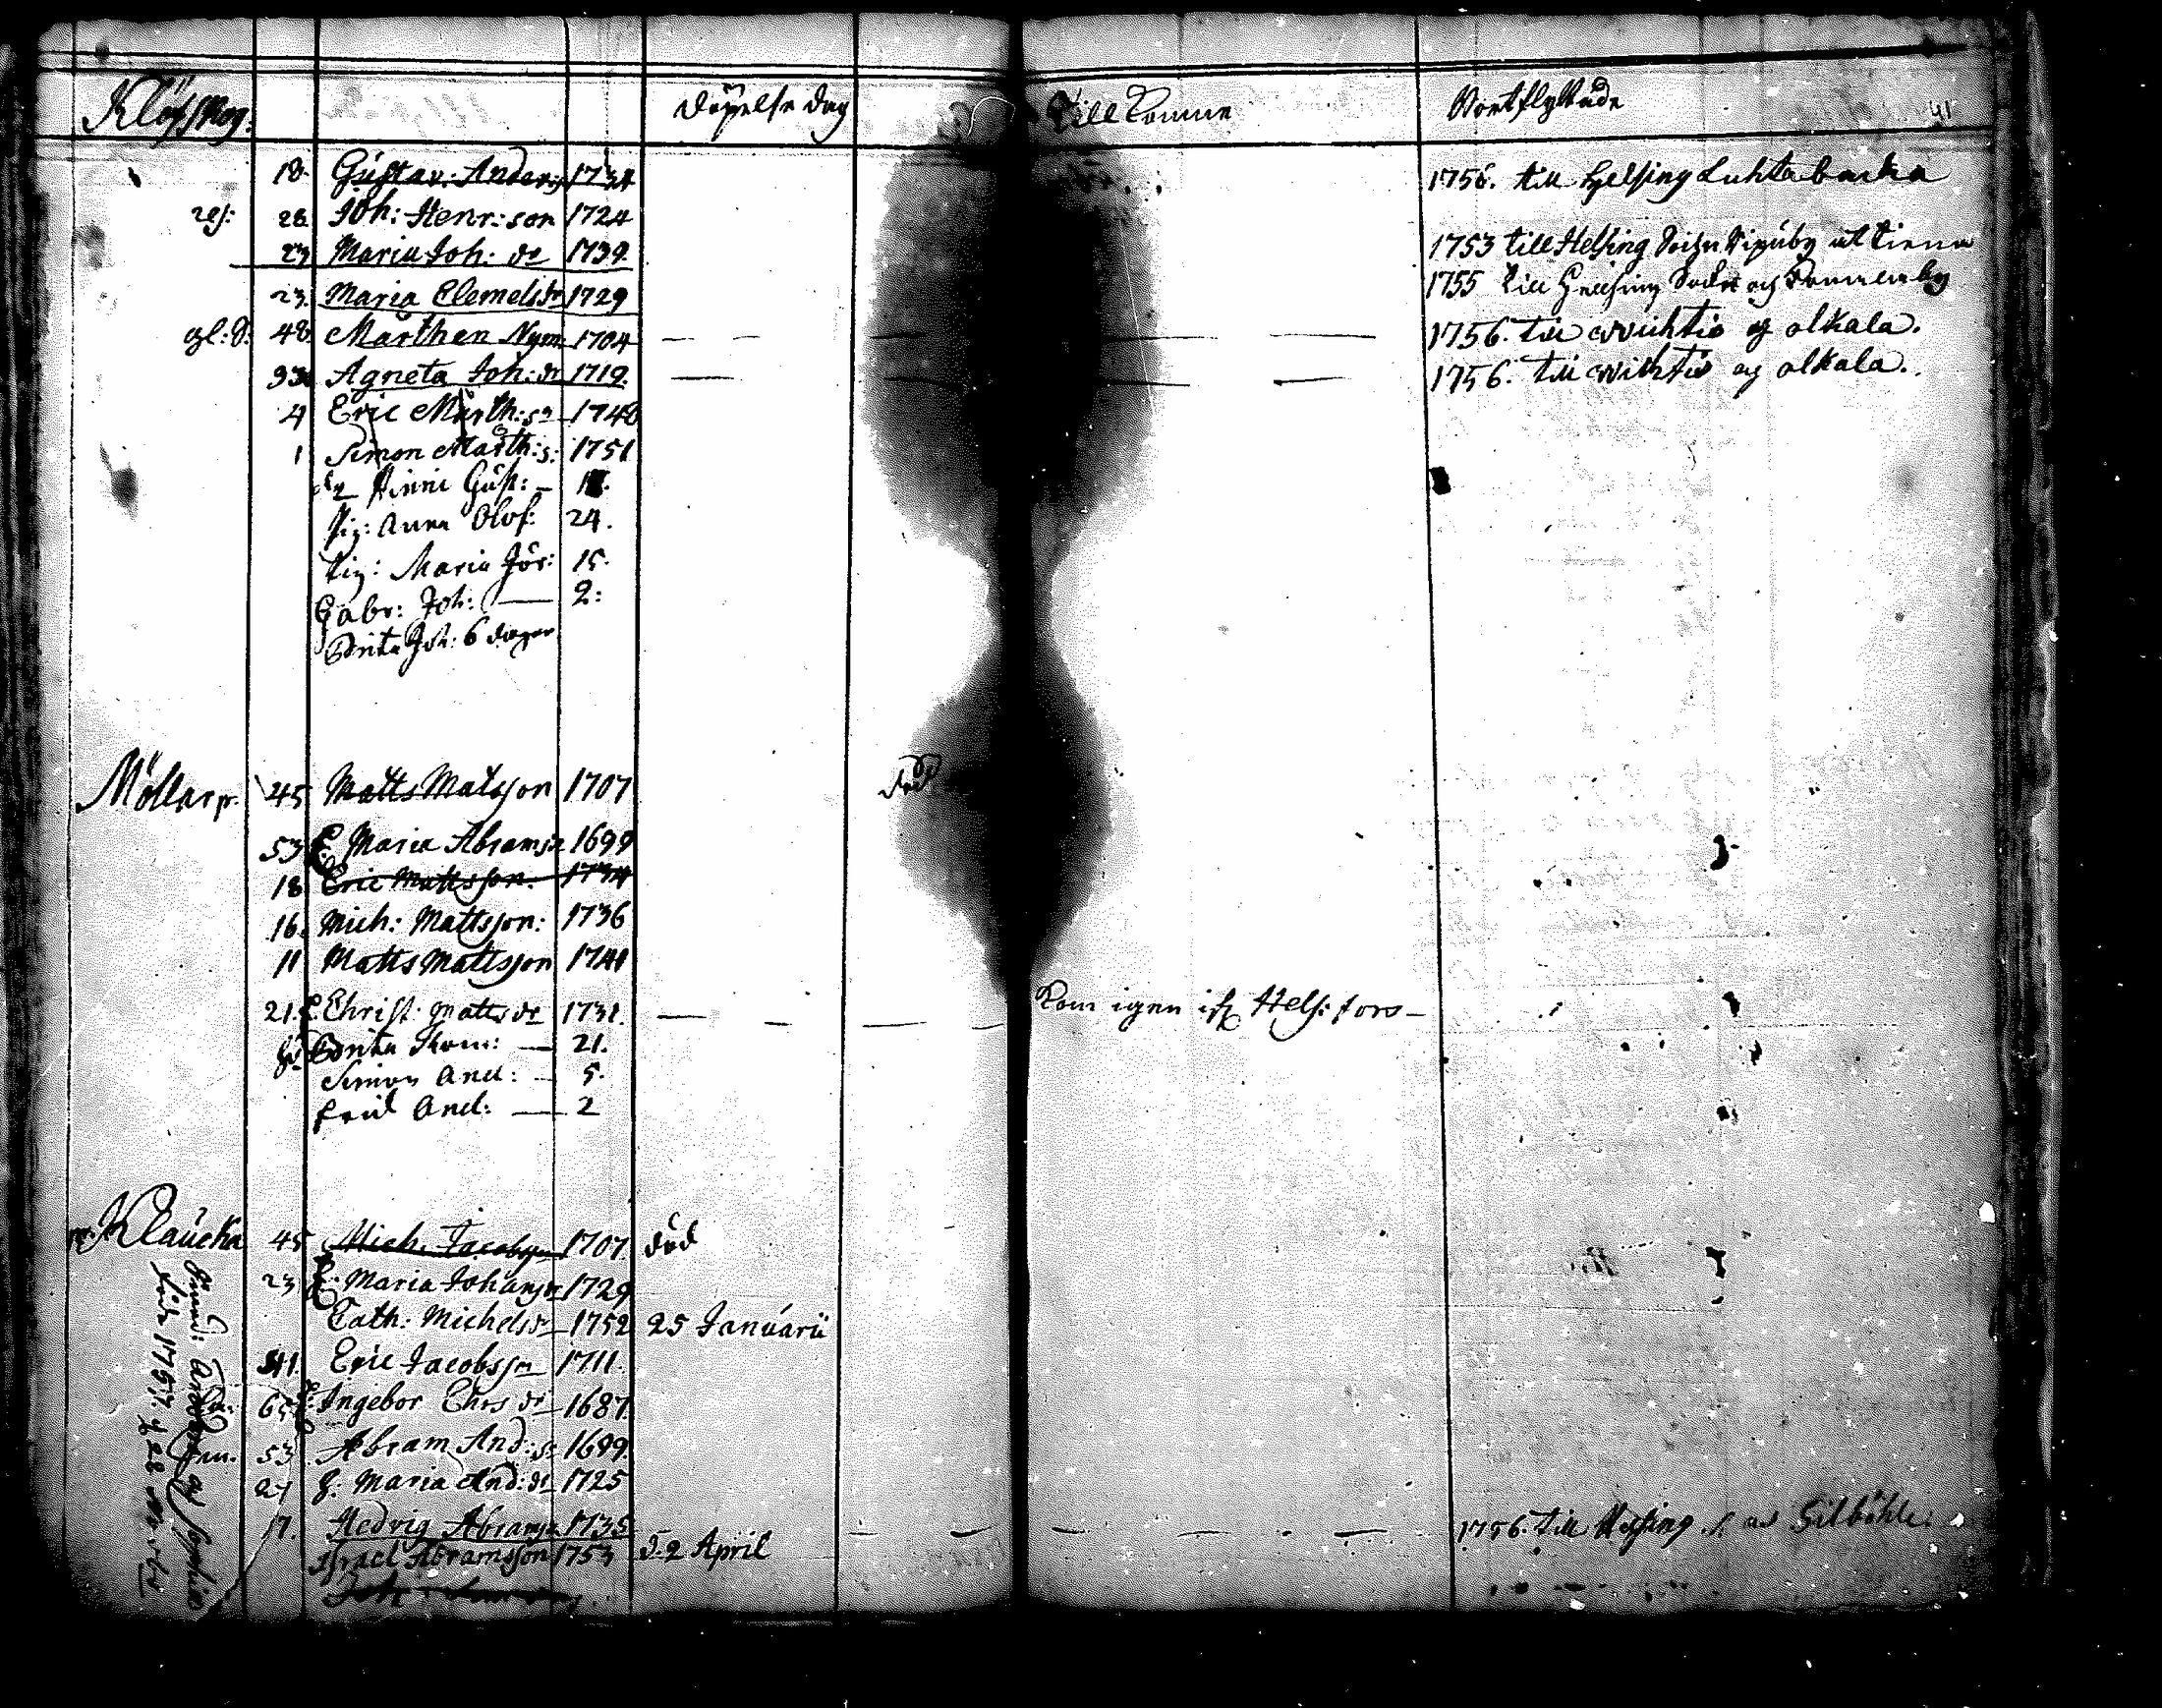 Klöfskog. Döpelse dag Till komne Bortflyttade 41
18. Gustav: Anders 1734 1756. till Helsing Luhtabacka
28 Joh: Henr:son 1724
23 Maria Joh: dr 1739 1753 till Helsing
23. Maria Clemets dr 1729 1755 till Helsing
gl: S: 48 Mårthen Nym 1704 1756. till Wichtis og olkala.
33 Agneta Joh: dr 1719. 1756. till Wichtis og olkala.
4 Eric Mårth: sn 1748
1 Simon Mårth: s: 1751
Hinni Gust: —
Pig: Anna Olof: 24.
Pig: Maria Jör: 15.
Gabr: Joh: — 2:
Brita Joh: 6 dagar
Möllar pr. 45 Matts Matsson 1707 död
53 E Maria Abrams dr 1699
18 Eric Mattsson. 1734
16. Mich: Mattsson: 1736
11 Matts Mattsson 1741
21. Christ. Matts dr 1731. Kom igen ifr Hels: fors
Brita Thom: — 21.
Simon And: — 5.
Erid And: — 2
Klaucka 45 Mich. Jacobsson 1707 död
23 E: Maria Johans dr 1729
Cath: Michels dr 1752 25 Januarii
41 Eric Jacobsson 1711.
65 Ingebor Ehrs dr 1687
53 Abram And: s: 1699
27 h: Maria And: dr 1725
17. Hedvig Abrams dr 1735 1756. till Helsing s. as Silböhle.
Israel Abramsson 1753 d. 2 April
1757. d 28